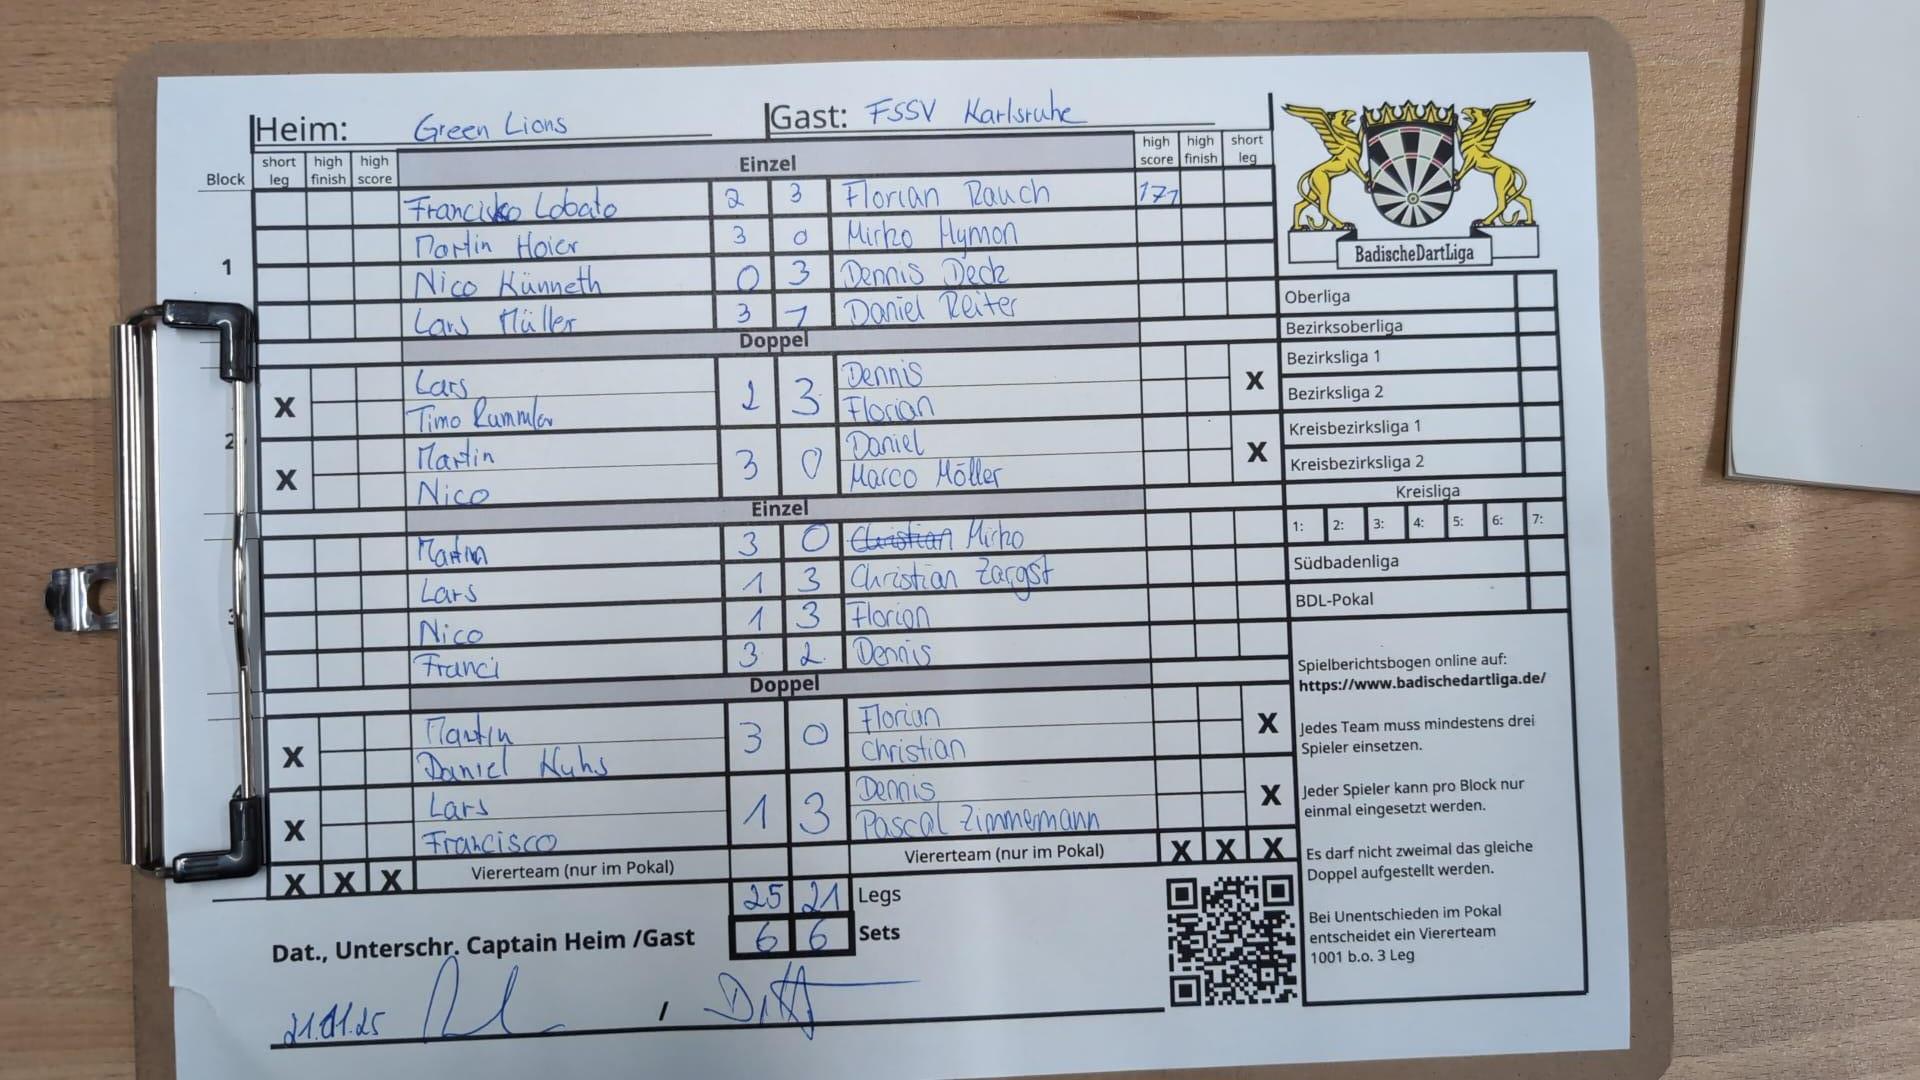 Heim: Green Lions Gast: FSSV Karlsruhe
Block short leg high finish high score Einzel high score high finish short leg
Francisko Lobato 2 3 Florian Rauch 171
Martin Hoier 3 0 Mirko Hymon
1
Nico Künneth 0 3 Dennis Deck
Lars Müller 3 1 Daniel Reiter
Doppel
Lars Dennis
X 2 3 X
Timo Rummler Florian
2
Martin Daniel
X 3 0 X
Nico Marco Möller
Einzel
Martin 3 0 Christian Mirko
Lars 1 3 Christian Zargst
3
Nico 1 3 Florian
Franci 3 2 Dennis
Doppel
Martin Florian
X 3 0 X
Daniel Kuhs Christian
Lars Dennis
X 1 3 X
Francisco Pascal Zimmemann
X X X Viererteam (nur im Pokal) Viererteam (nur im Pokal) X X X
25 21 Legs
6 6 Sets
Dat., Unterschr. Captain Heim /Gast
21.01.25 /
BadischeDartLiga
Oberliga
Bezirksoberliga
Bezirksliga 1
Bezirksliga 2
Kreisbezirksliga 1
Kreisbezirksliga 2
Kreisliga
1: 2: 3: 4: 5: 6: 7:
Südbadenliga
BDL-Pokal
Spielberichtsbogen online auf:
https://www.badischedartliga.de/
Jedes Team muss mindestens drei
Spieler einsetzen.
Jeder Spieler kann pro Block nur
einmal eingesetzt werden.
Es darf nicht zweimal das gleiche
Doppel aufgestellt werden.
Bei Unentschieden im Pokal
entscheidet ein Viererteam
1001 b.o. 3 Leg